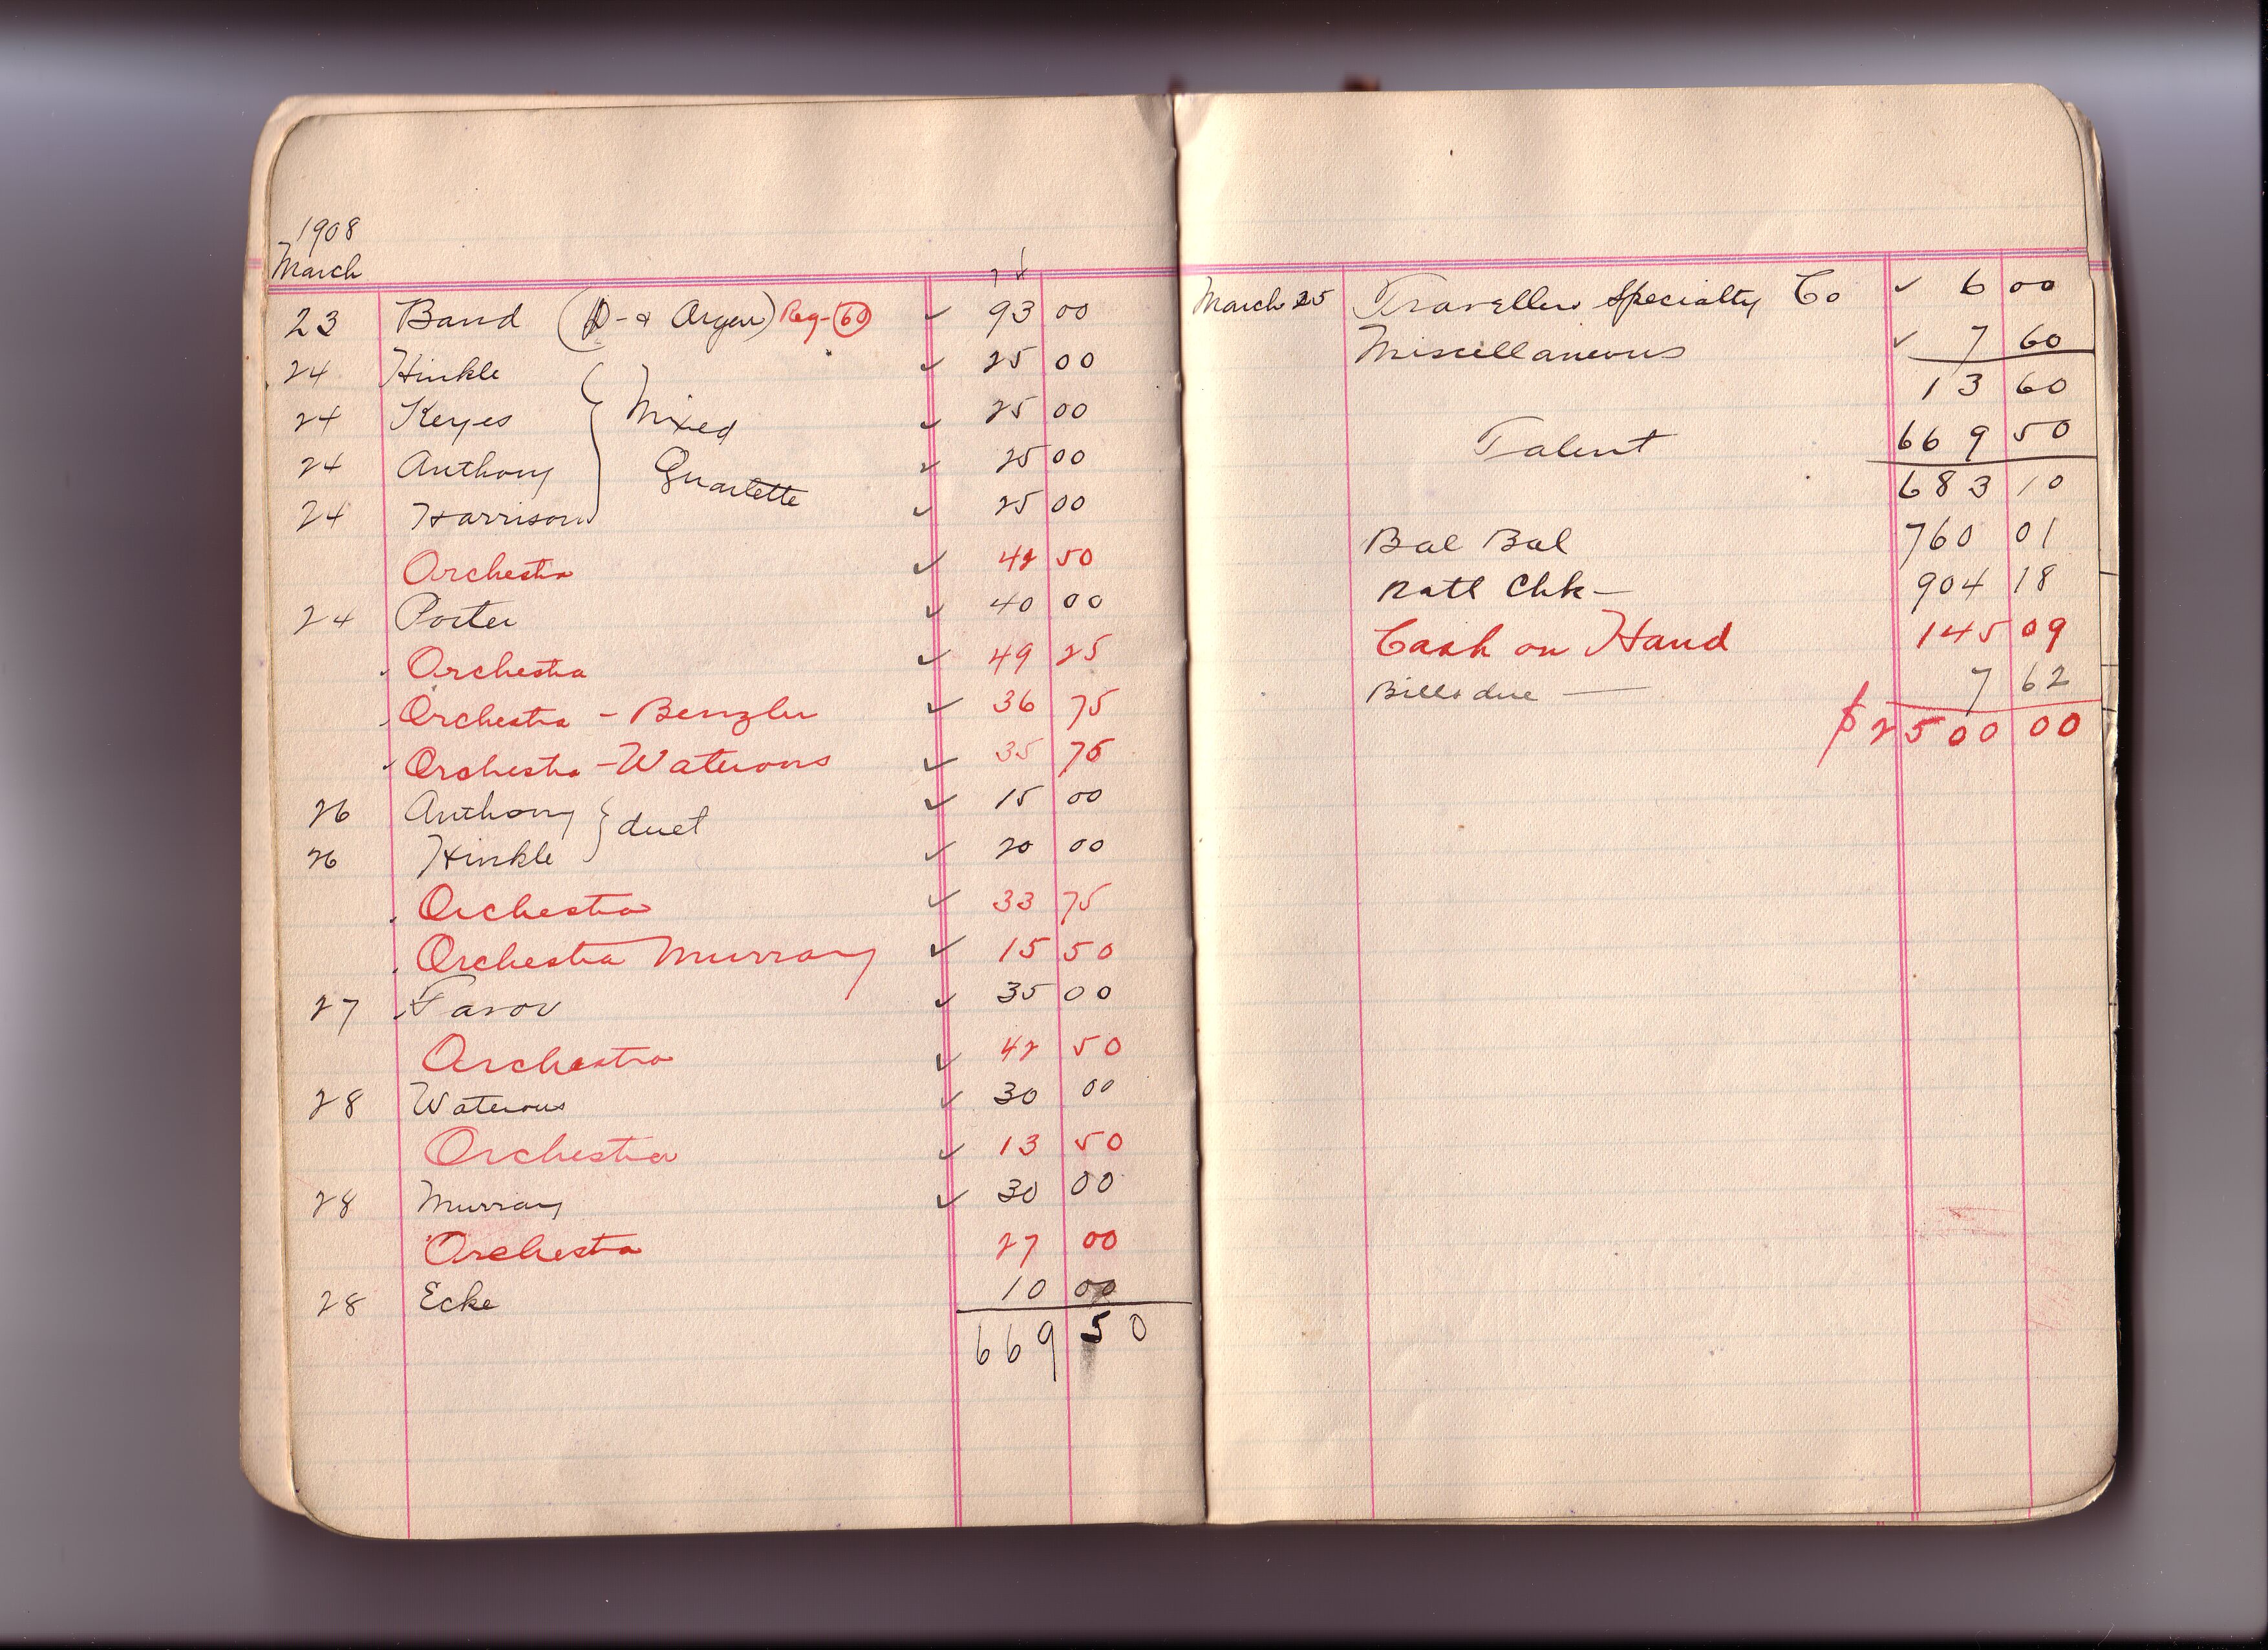 1908
March
23 Band (D - & Argen) Reg - 60 ✓ 93 00
24 Hinkle ✓ 25 00
24 Keyes Mixed ✓ 25 00
24 Anthony Quartette ✓ 25 00
24 Harrison ✓ 25 00
Orchestra ✓ 42 50
24 Porter ✓ 40 00
Orchestra ✓ 49 25
Orchestra - Benzler ✓ 36 75
Orchestra - Waterous ✓ 35 75
26 Anthony } duet ✓ 15 00
26 Hinkle ✓ 20 00
Orchestra ✓ 33 75
Orchestra Murray ✓ 15 50
27 Favor ✓ 35 00
Orchestra ✓ 42 50
28 Waterous ✓ 30 00
Orchestra ✓ 13 50
28 Murray ✓ 30 00
Orchestra 27 00
28 Ecke 10 00
669 50
March 25 Travellers Specialty Co ✓ 6 00
Miscellaneous ✓ 7 60
13 60
Talent 669 50
683 10
Bal Bal 760 01
Natl Chk - 904 18
Cash on Hand 145 09
Bills due — 7 62
$2500 00